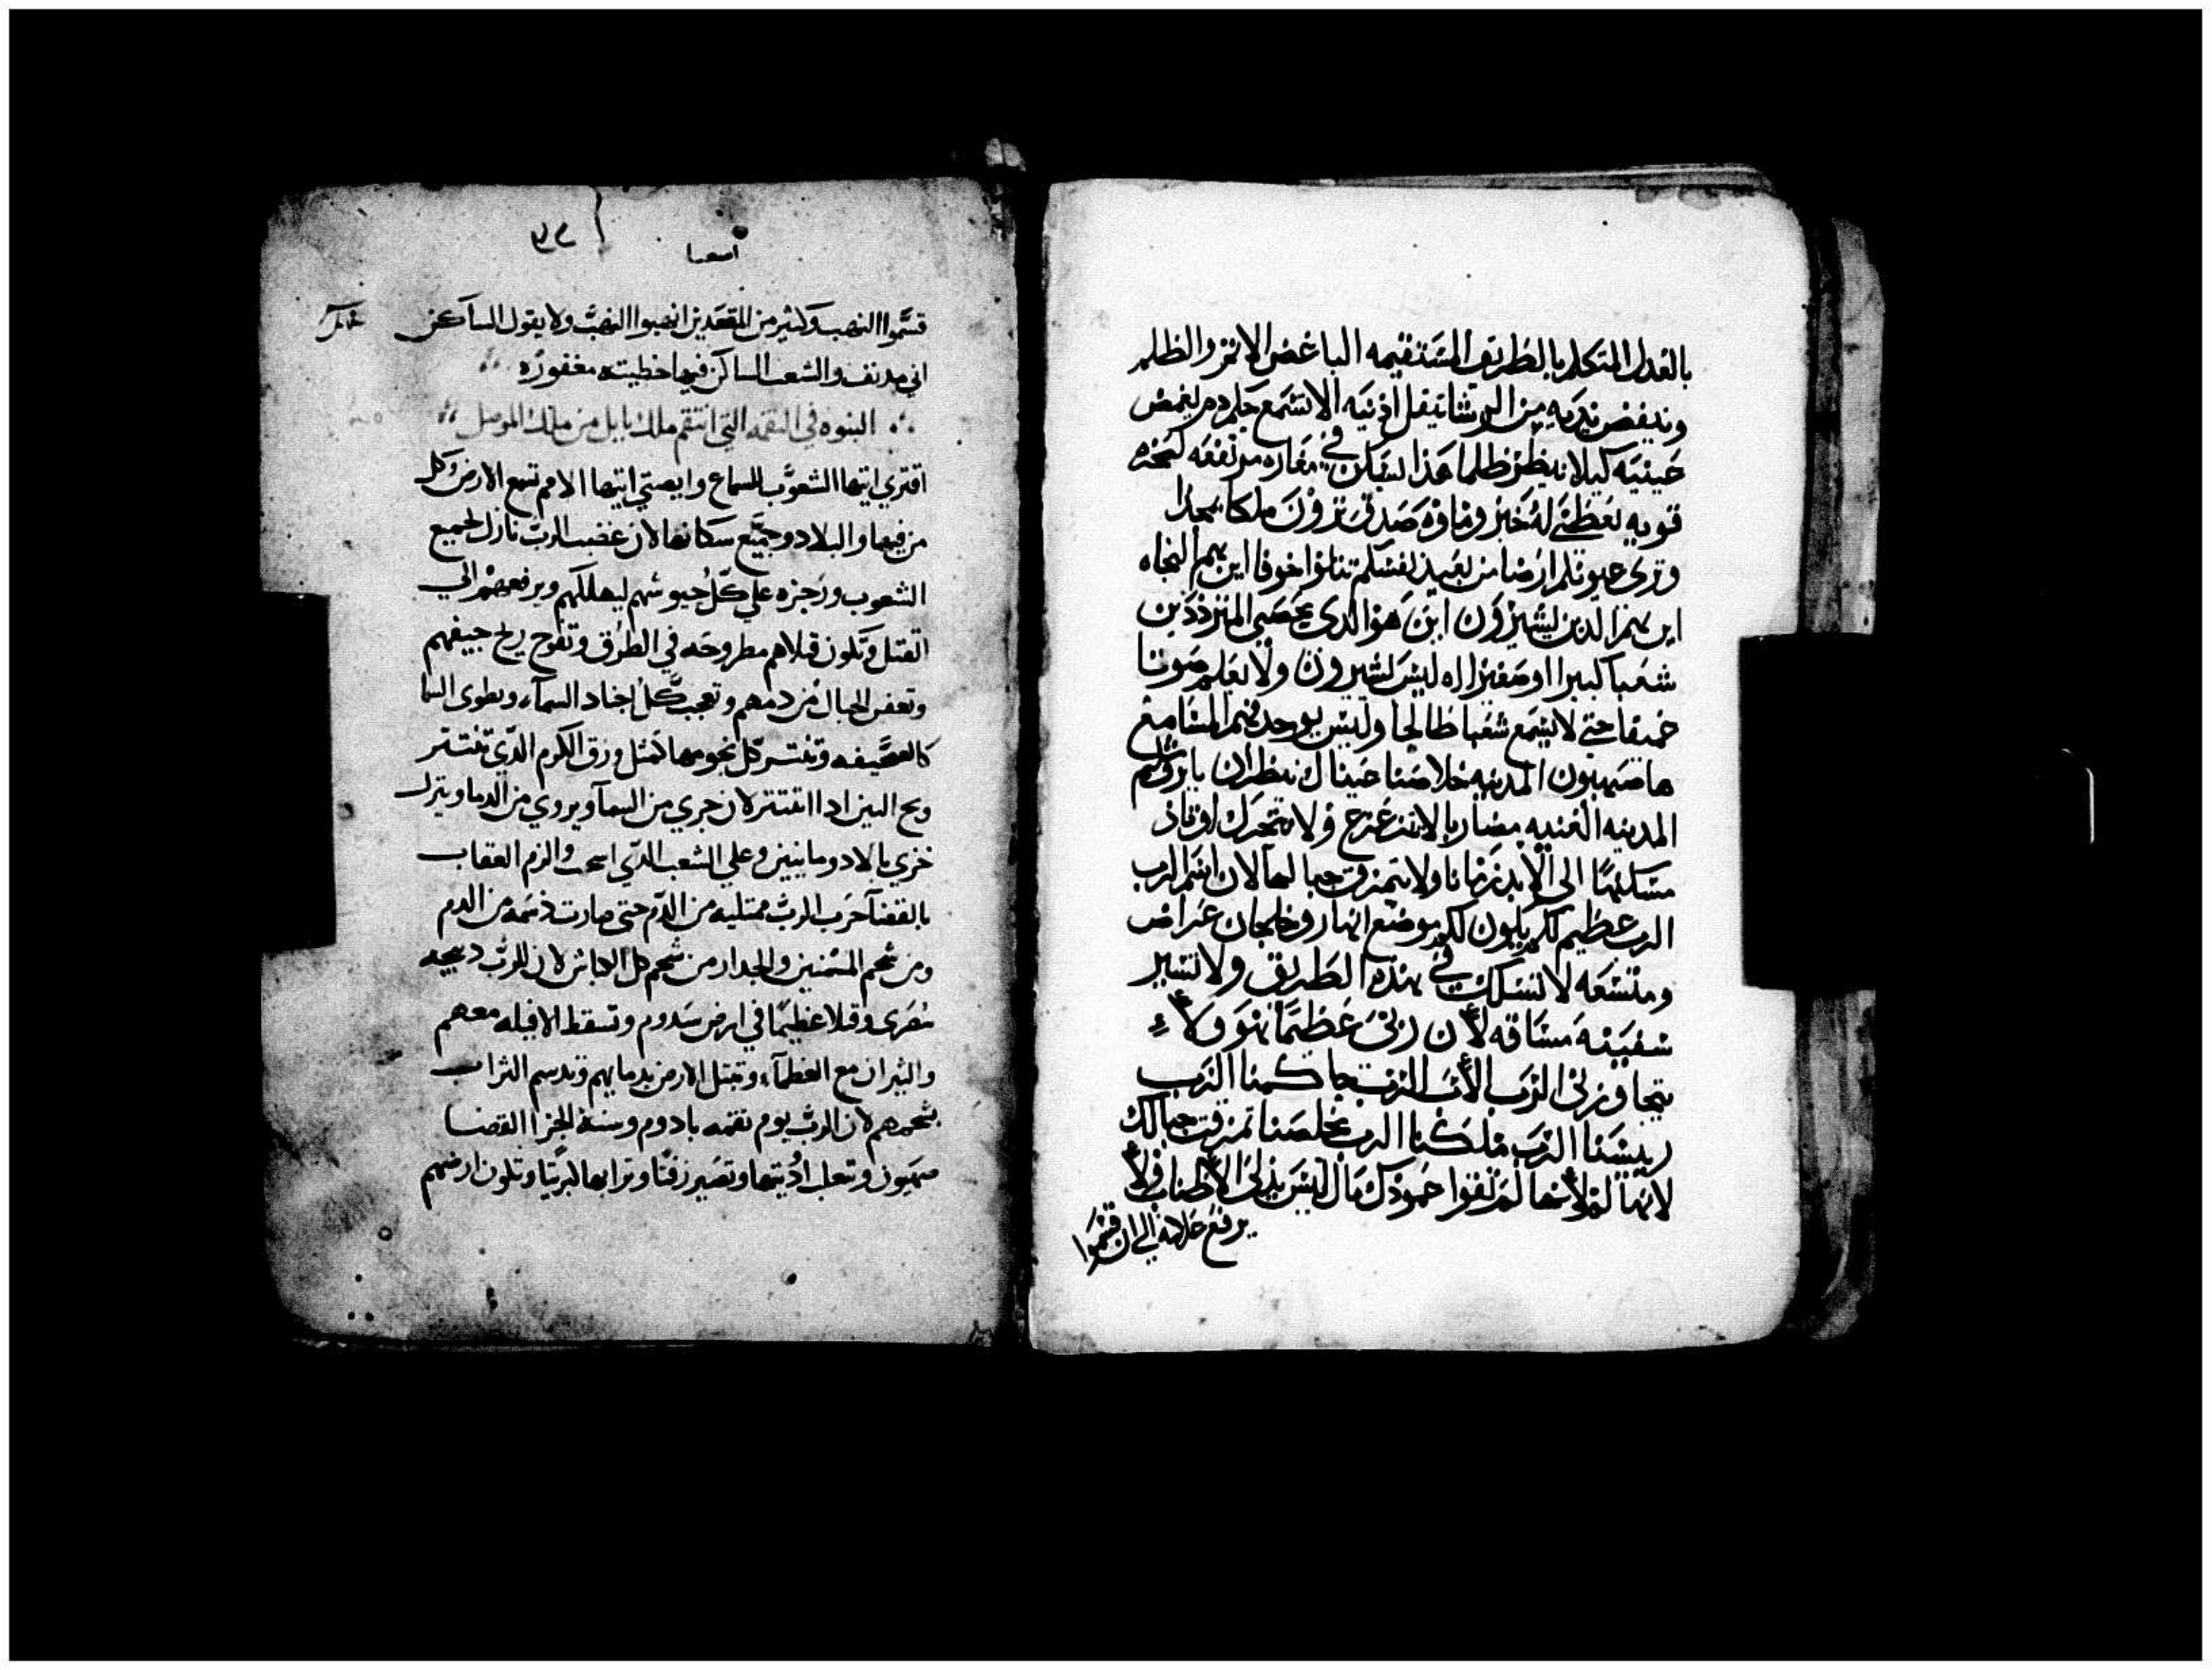 بالعدل المتكلم بالطريق المستقيمه الباغض الاثم والظلم
وينفض يديه من الرشا يثقل اذنيه الا تسمع حكم دم يغمض
عينيه كيلا ينظر ظلما هذا يسكن في مغاره مرتفعه كصخره
قويه يعطى له خبز وماوه صدقى ترون ملكا بمجد
وترى عيونكم ارضا من بعيد نفسكم تتلوا خوفا اين هم النحاه
اين هم الذين يشيرون اين هو الدى يحصى المتزددين
شعبا كبيرا او صغيرا اه ليس يشيرون ولا يعلم صوتا
عميقا حتى لا يسمع شعبا طالحا وليس يوجد فهم للسامع
ها صهيون المدينه خلاصنا عيناك ينظران يا يروشليم
المدينه الغنيه مضارب لا تتزعزع ولا تتحرك اوتاد
مسكنها الى الابد زمانا ولا يتمزق حبالها لان اسم الرب
الرب عظيم لكم يكون لكم موضع انهار وخلجان عراض
ومتسعه لا تسلك في هذه الطريق ولا تسير
سفينه مشاقه لان ربى عظيما هو ولا
يتجاوزنى الرب لان الرب حاكمنا الرب
ريسنا الرب ملكنا الرب مخلصنا تمزقت حبالك
لانها لم لانها لم تقوا عمودك مال ليس يدلى الاطناب ولا
يرفع علامه الى ان قسموا
اسعيا
قسموا النهب وكثير من المقعدين انهبوا النهب ولا يقول الساكن
اني مدنف والشعب الساكن فيها خطيته مغفوره
النبوه في النقمه التي انتقم ملك بابل من ملك الموصل
اقتربي ايتها الشعوب للسماع وانصتي ايتها الامم تسمع الارض وكل
من فيها والبلاد وجميع سكانها لان غضب الرب نازل بجميع
الشعوب ورجزه علي كل جيوشهم ليهلكهم ويرفعهم الي
القتل وتكون قتلاهم مطروحه في الطرق وتفوح ريح جيفهم
وتعفن الجبال من دمهم وتعجب كل اجناد السماء وتطوى السما
كالصحيفه وتنتثر كل نجومها كمثل ورق الكرم الذي تنتثر
خزي بالادومانيين وعلي الشعب الذي استحق والزم العقاب
بالقضا حرب الرب ممتليه من الدم حتى صارت دسمه من الدم
ومن شحم المسمنين والجدا ومن شحم كل الكباش لان للرب دبيحه
بصرى وقتلا عظيما في ارض سدوم وتسقط الافيله معهم
والثيران مع العظماء وتبتل الارض بدمايهم وتدسم التراب
بشحمهم لان للرب يوم نقمه بادوم وسنة الجزا القضا
صهيون وتنقلب اوديتها وتصير زفتا وترابها كبريتا وتكون ارضهم